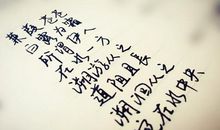 蒹葭苍苍
白露为霜
所谓伊人
在水一方
溯游从之
道阻且长
溯洄从之
宛在水中央